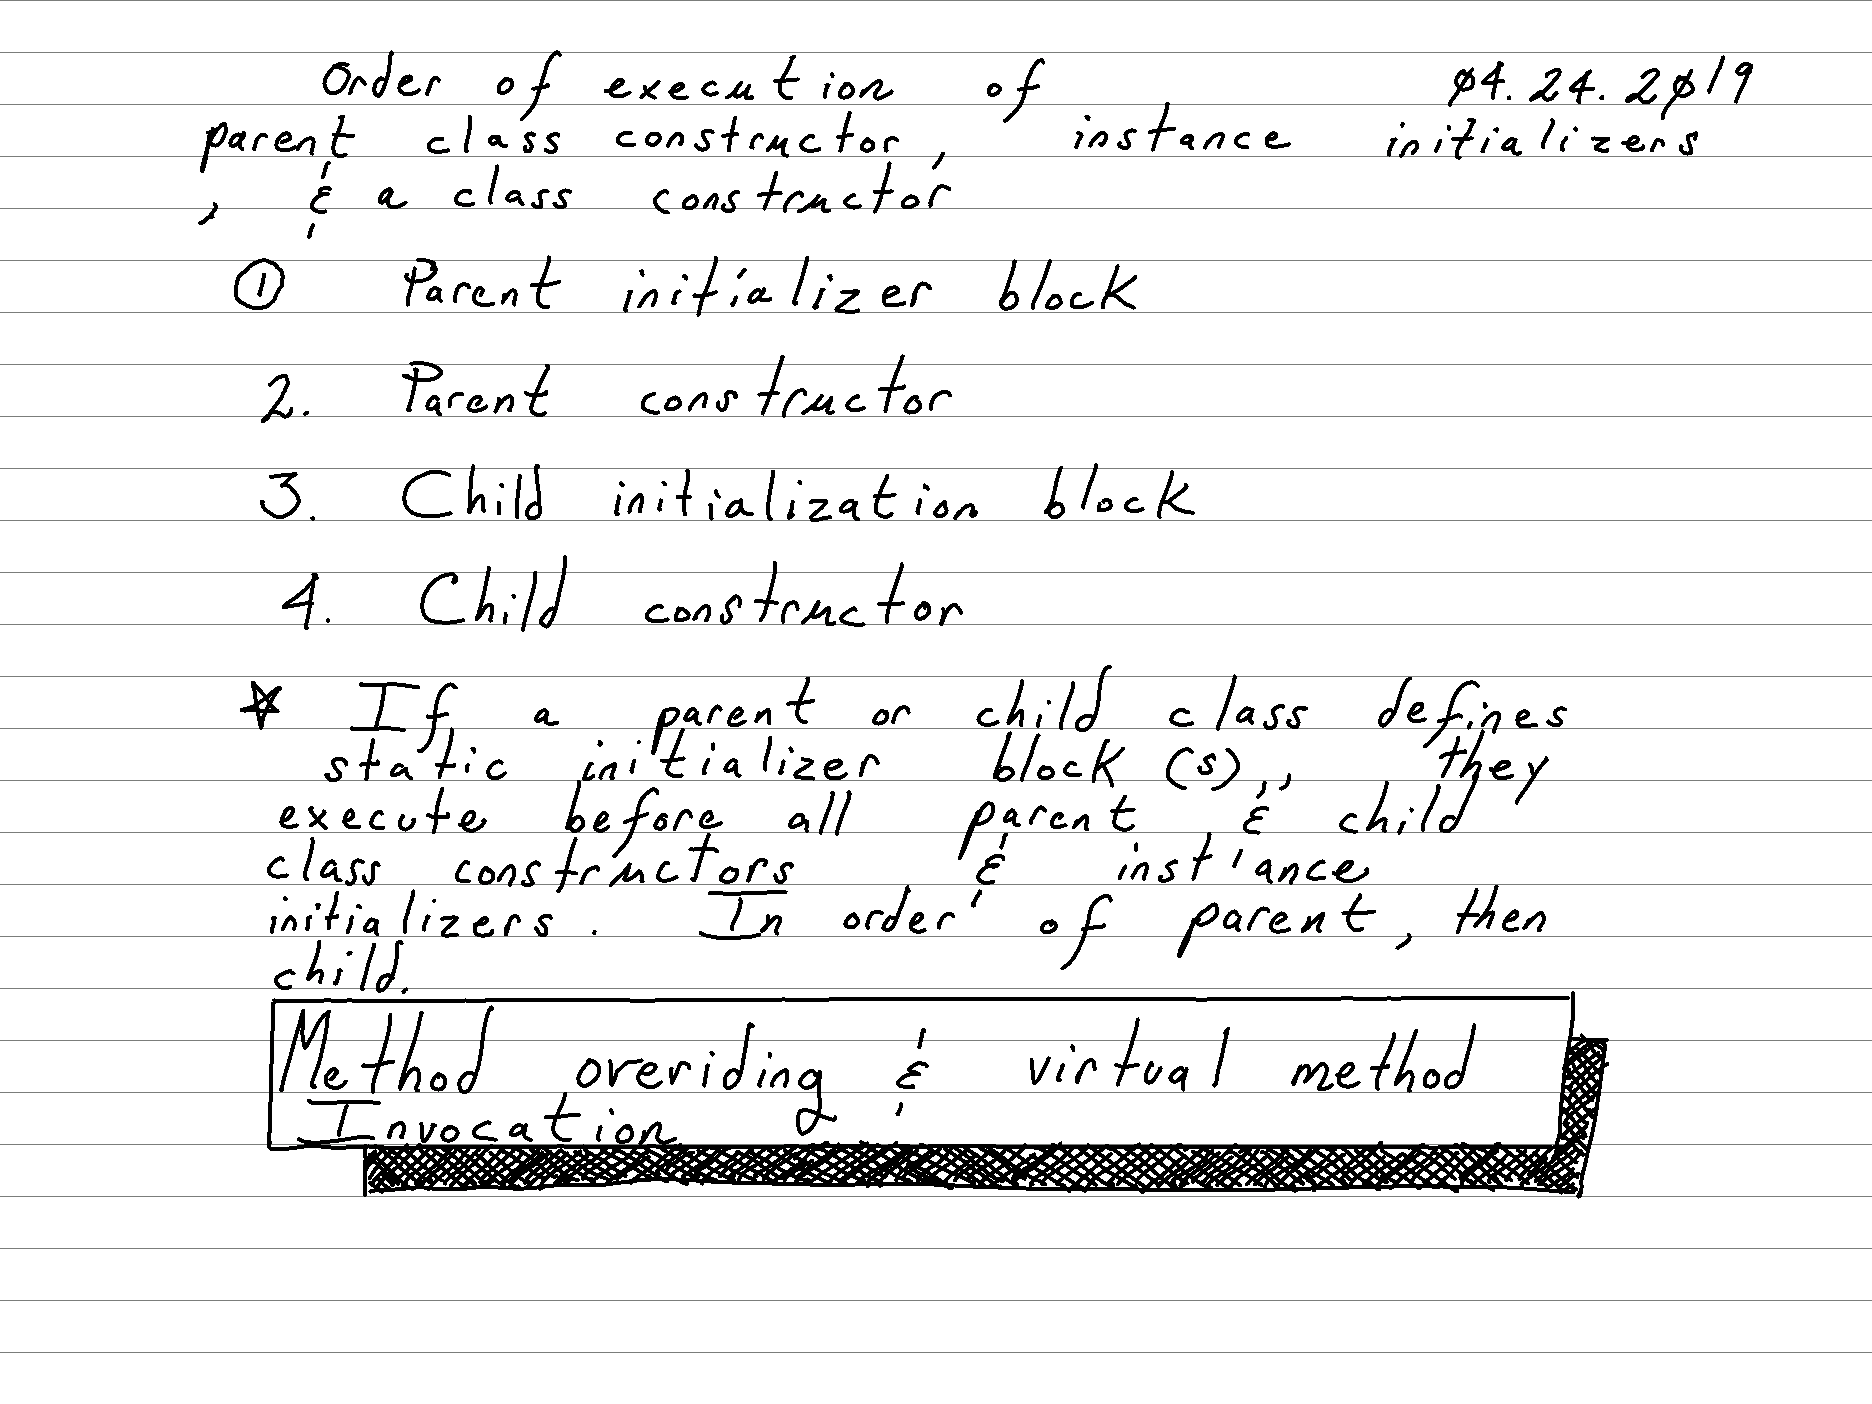 Order of execution of 04.24.2019
parent class constructor, instance initializers
, & a class constructor
① Parent initializer block
2. Parent constructor
3. Child initialization block
4. Child constructor
☆ If a parent or child class defines
static initializer block (s),, they
execute before all parent & child
class constructors & instance
initializers. In order of parent, then
child.
Method overiding & virtual method
Invocation